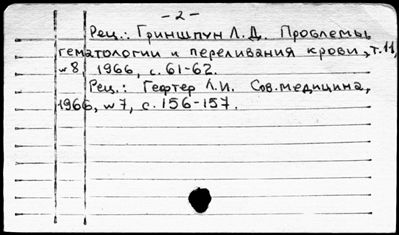 -2-
Рец.: Гриншпун Л.Д. Проблемы
гематологии и переливания крови, т.11,
№8, 1966, с. 61-62.
Рец.: Гефтер Л.И. Сов.медицина,
1966, №7, с. 156-157.